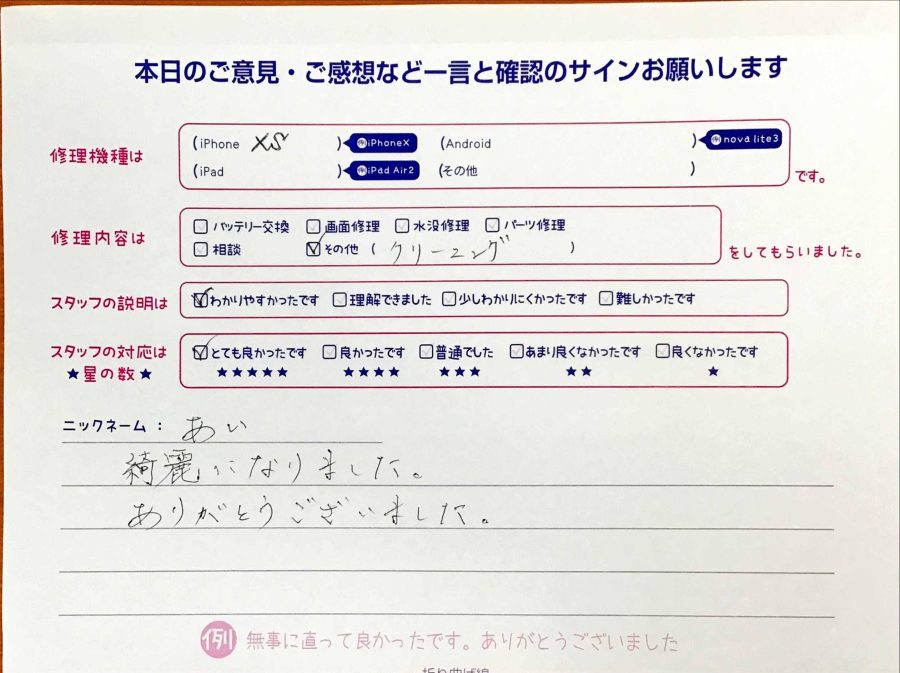 本日のご意見・ご感想など一言と確認のサインお願いします
修理機種は
(iPhone XS ) 例iPhoneX (Android ) 例nova lite3
(iPad ) 例iPad Air2 (その他 )
です。
修理内容は
バッテリー交換 画面修理 水没修理 パーツ修理
相談 その他 ( クリーニング )
をしてもらいました。
スタッフの説明は わかりやすかったです 理解できました 少しわかりにくかったです 難しかったです
スタッフの対応は とても良かったです 良かったです 普通でした あまり良くなかったです 良くなかったです
★星の数★ ★★★★★ ★★★★ ★★★ ★★ ★
ニックネーム: あい
綺麗になりました。
ありがとうございました。
例 無事に直って良かったです。ありがとうございました